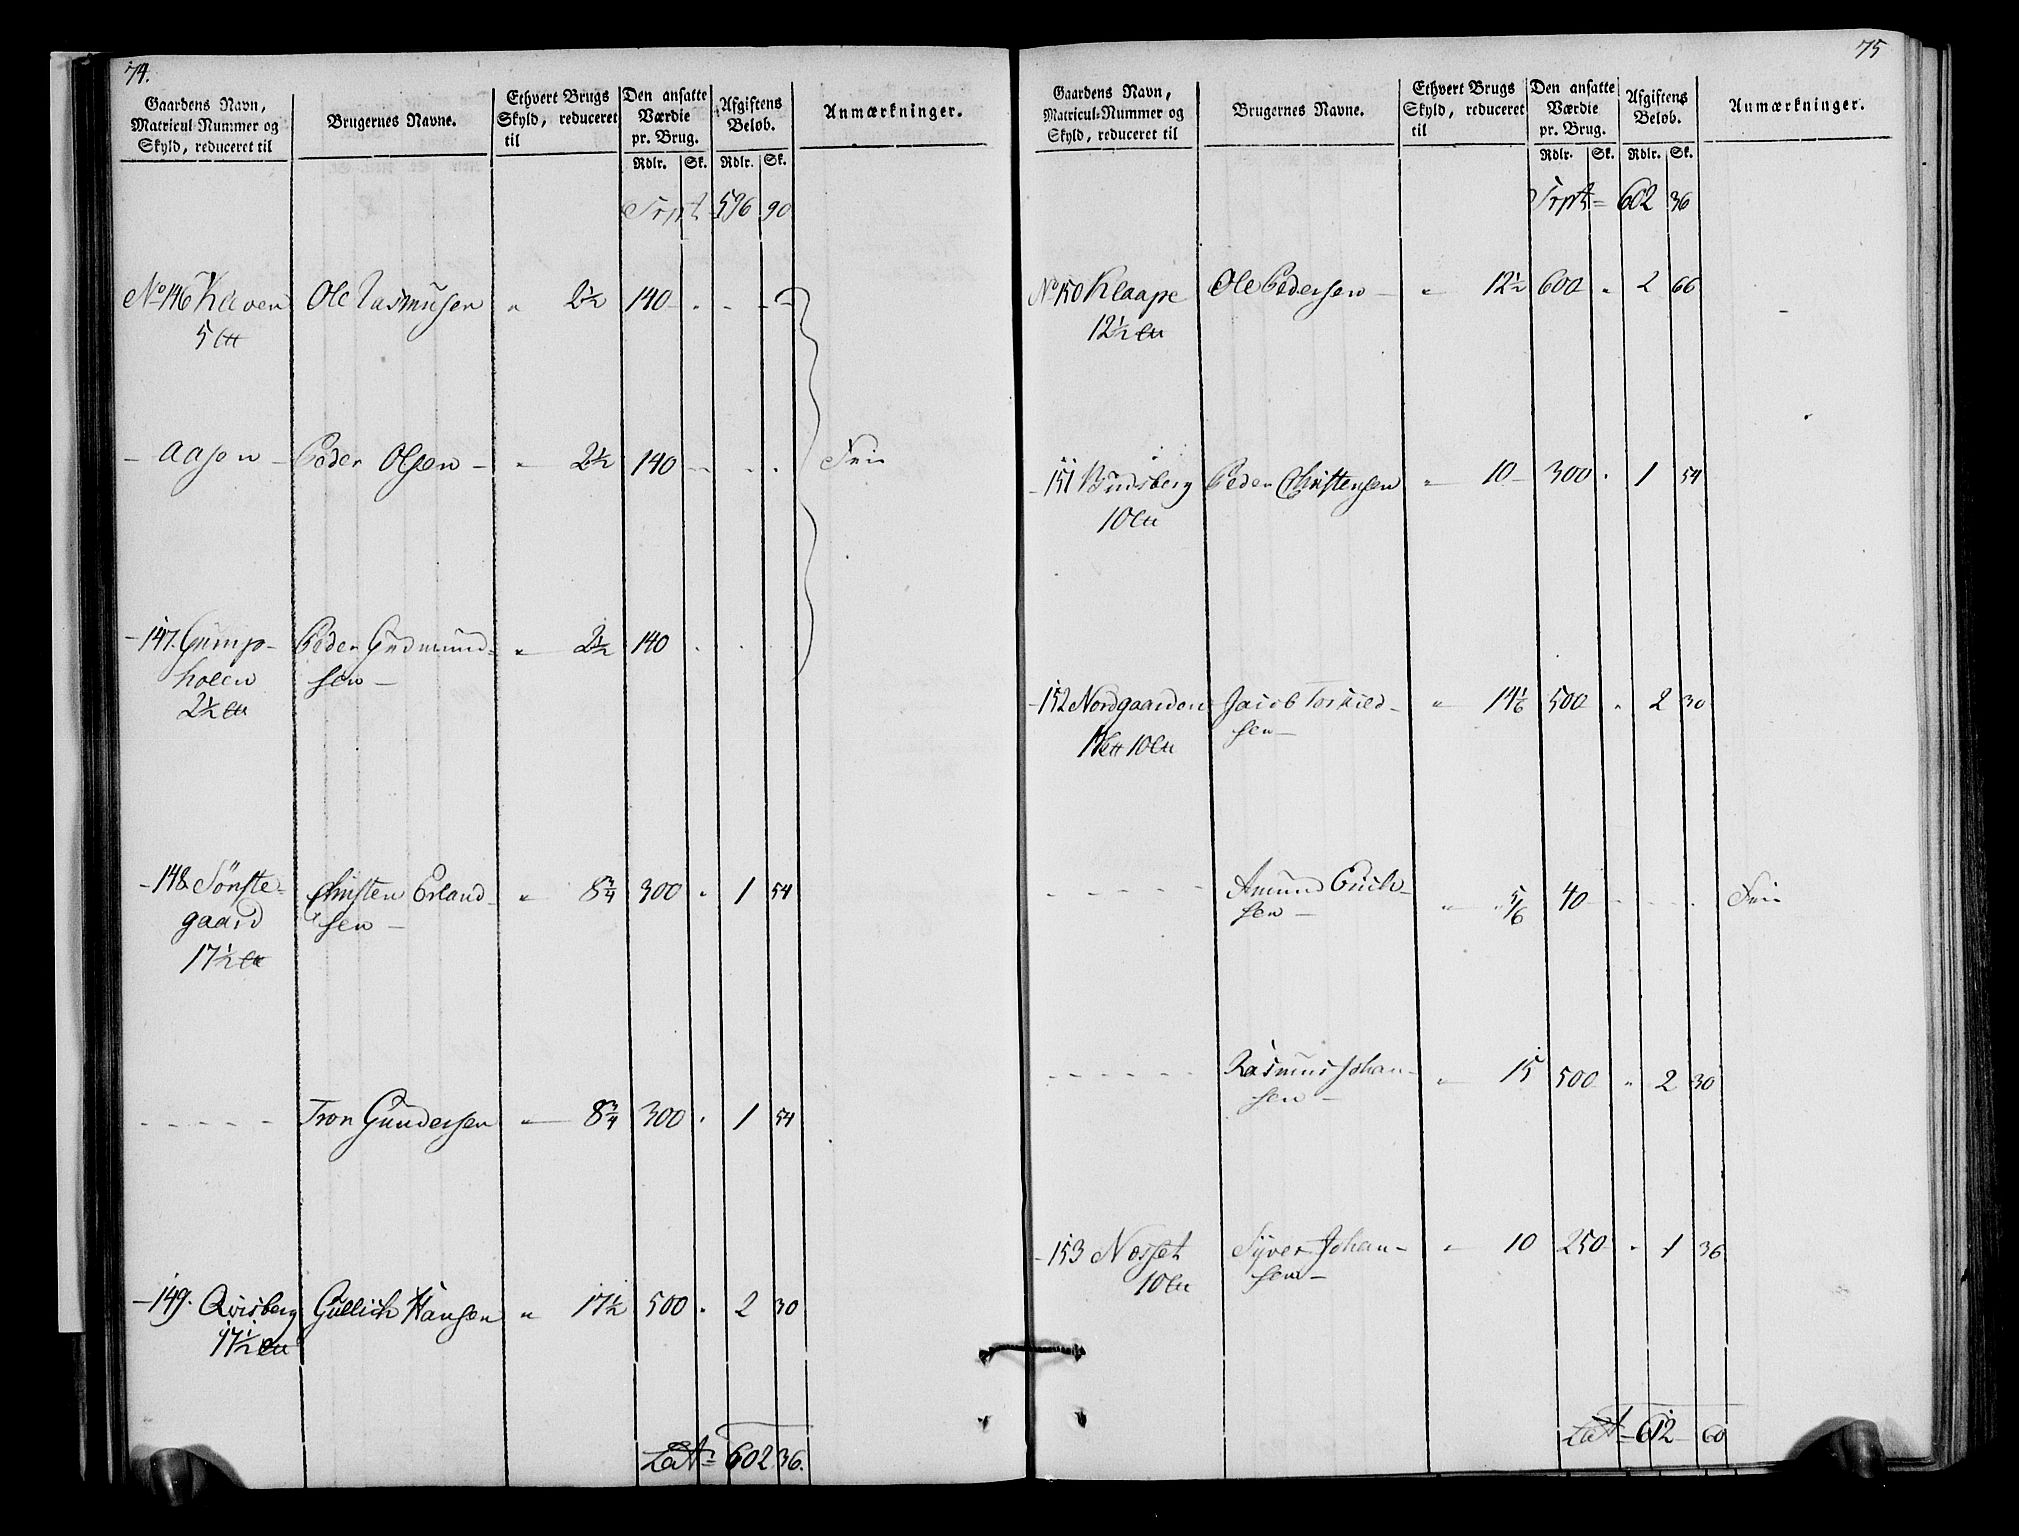 74.
Gaardens Navn, Matricul-Nummer og Skyld, reduceret til
Brugernes Navne.
Ethvert Brugs Skyld, reduceret til
Den ansatte Værdie pr. Brug.
Afgiftens Beløb.
Anmærkninger.
Rdlr. Sk. Rdlr. Sk.
Trpt 596 90
No 146 Kleven Ole Rasmusen " 2½ 140 - . - - -
5
- Aasen - Peder Olsen - " 2½ 140 - - . . Frie
- 147. Gump- Peder Gudmund- " 2½ 140 . . .
holen sen -
2½
- 148 Sönste- Christen Erland- " 8¾ 300 " 1 54
gaard sen -
17½
- - - - - Tron Gundersen " 8¾ 300 . 1 54
- 149. Qvisberg Gullich Hansen " 17½ 500 . 2 30
17½
Lat= 602 36.
75
Gaardens Navn, Matricul-Nummer og Skyld, reduceret til
Brugernes Navne.
Ethvert Brugs Skyld, reduceret til
Den ansatte Værdie pr. Brug.
Afgiftens Beløb.
Anmærkninger.
Rdlr. Sk. Rdlr. Sk.
Trpt= 602 36
No 150 Klaape Ole Pedersen - " 12½ 600 " 2 66
12½
- 151 Budsberg Peder Christensen " 10 - 300 . 1 54
10
- 152 Nordgaarden Jacob Torkild- " 14⅙ 500 " 2 30
sen -
10
- - - - - Amund Erich- " " ⅚ 40 - - - . Frie
sen -
- - - - - Rasmus Johan- " 15 500 " 2 30
sen -
- 153 Nosset Syver Johan- " 10 250 " 1 36
10 sen -
Lat= 612 60